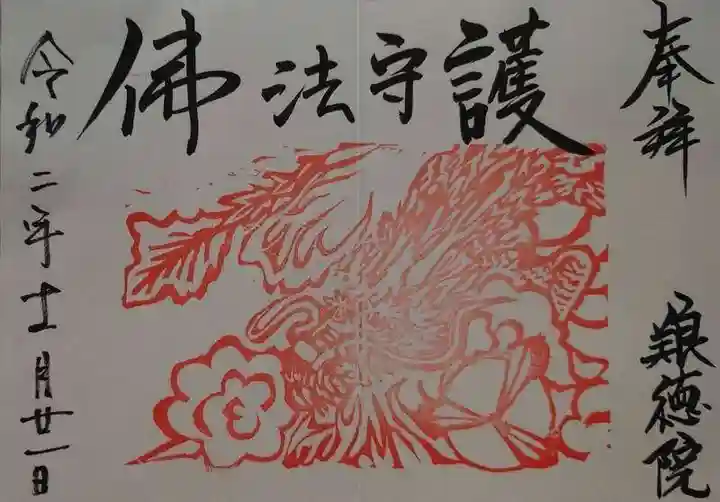 奉拝
徳院
護守法佛
令和二年十一月廿一日